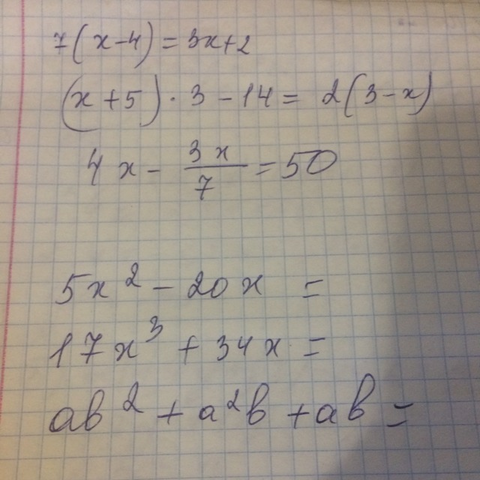 7(x-4)=3x+2
(x+5)·3-14= 2(3-x)
4x-\frac{3x}{7}=50
5x²-20x =
17x³+34x=
ab²+a²b+ab=